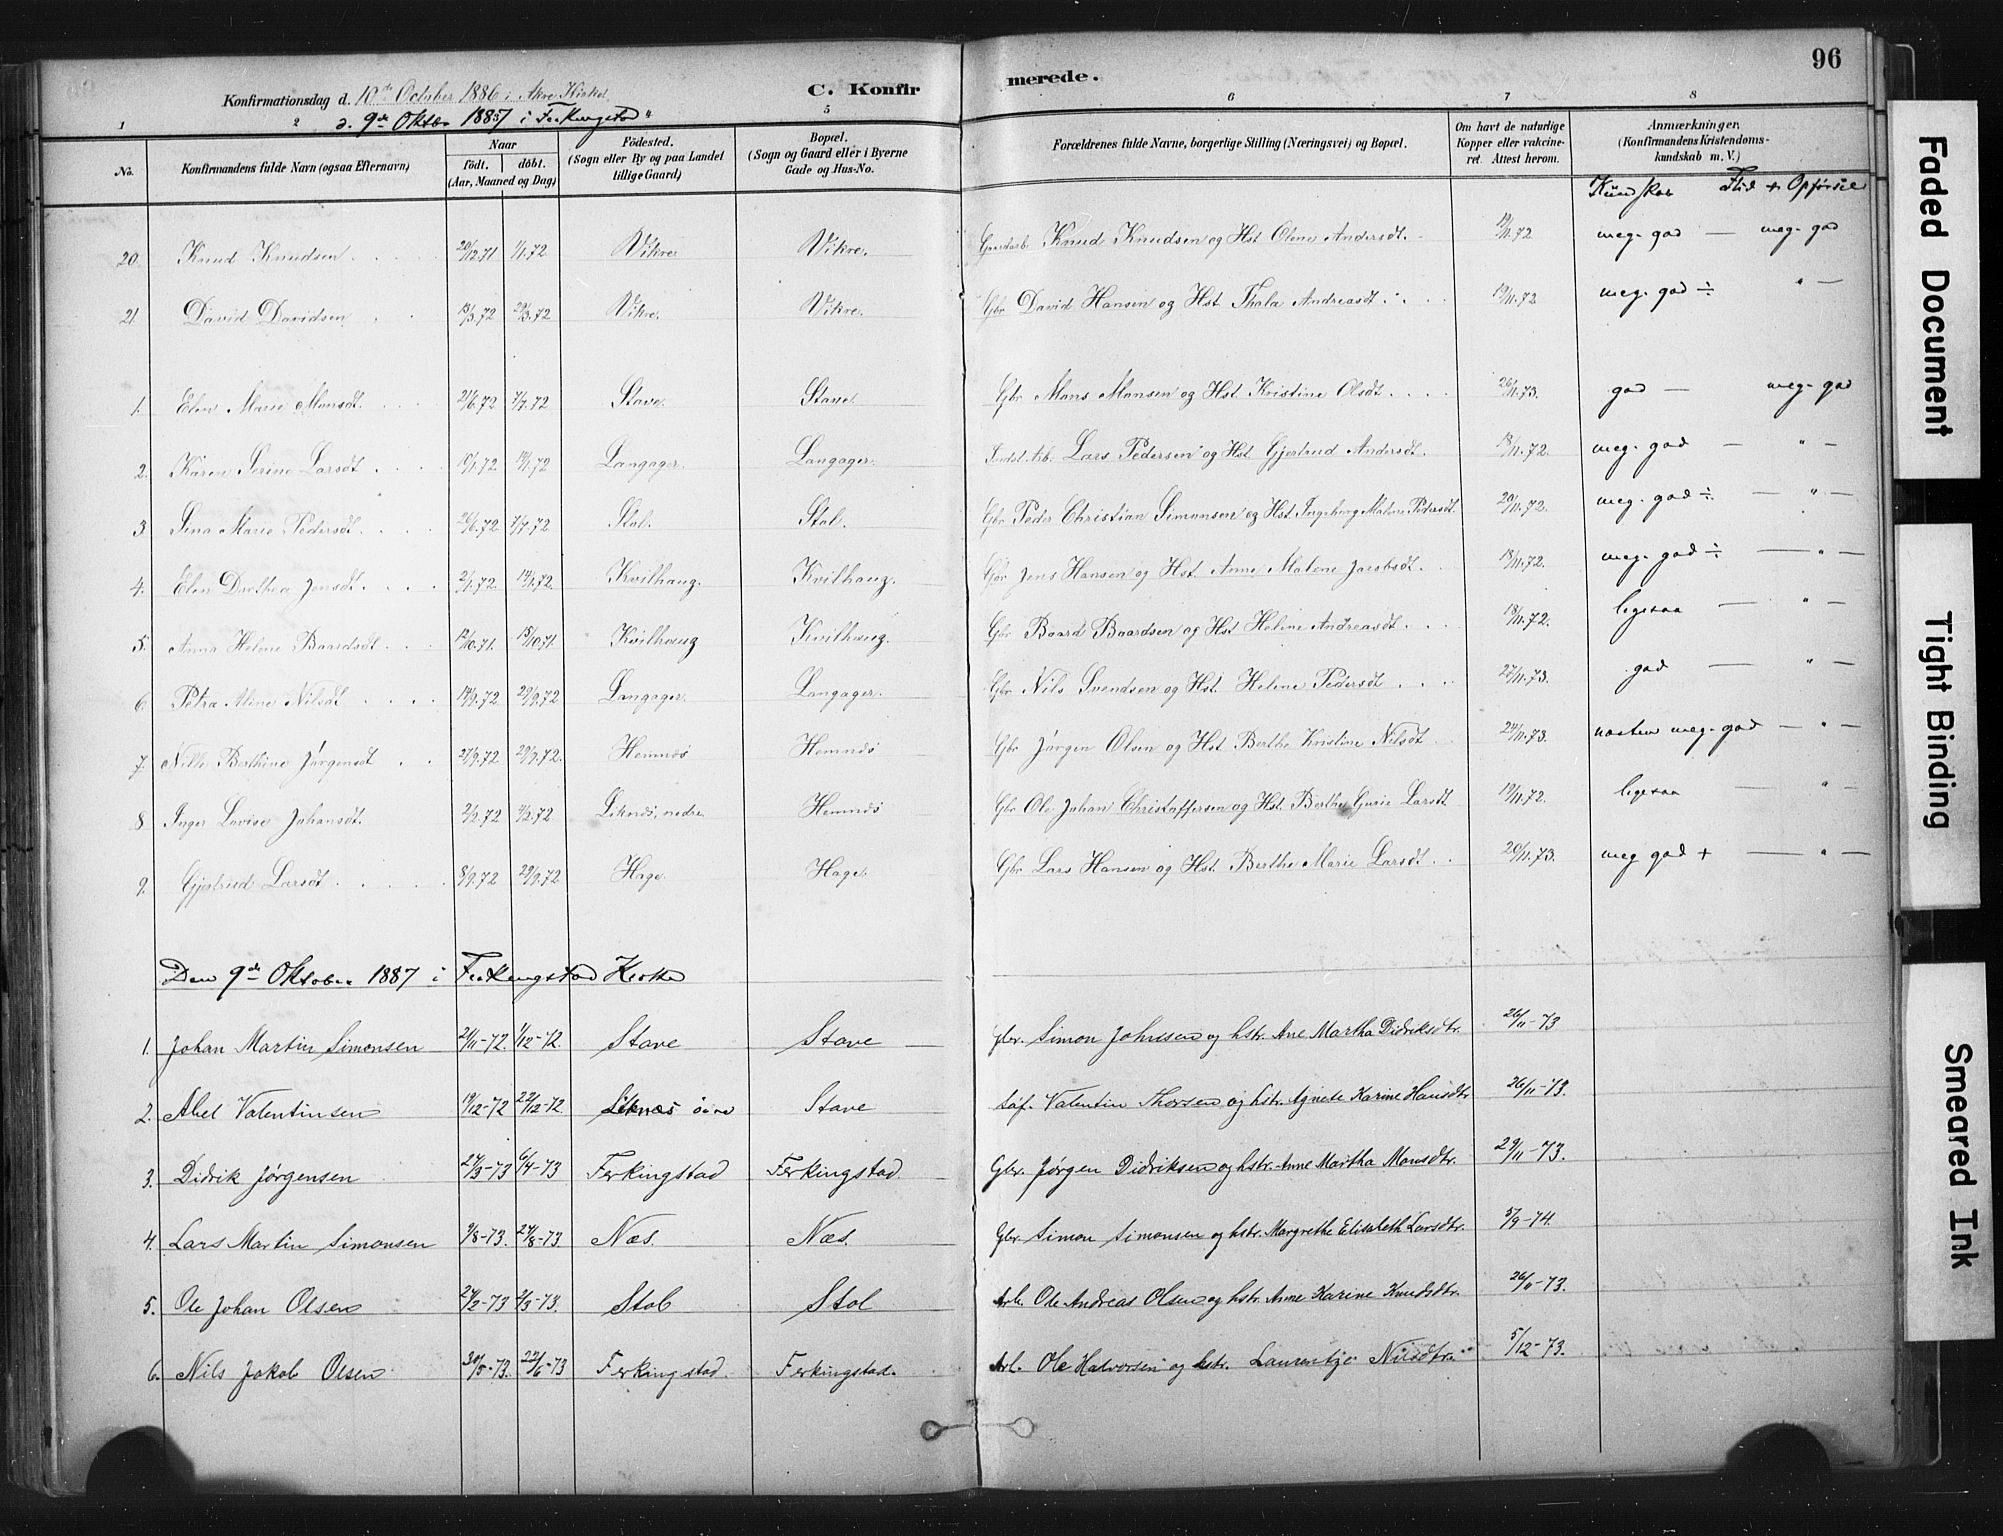 96
C. Konfirmerede.
Konfirmationsdag d. 10de October 1886 i Akre Kirke
d. 9de Oktbr 1887 i Ferkingstad "
1 2 5 6 7 8
No. Konfirmandens fulde Navn (ogsaa Efternavn) Naar født. døbt. (Aar, Maaned og Dag) Fødested. (Sogn eller By og paa Landet tillige Gaard) Bopæl. (Sogn og Gaard eller i Byerne Gade og Hus-No. Forældrenes fulde Navne, borgerlige Stilling (Næringsvei) og Bopæl. Om havt de naturlige Kopper eller vakcineret. Attest herom. Anmærkninger. (Konfirmandens Kristendomskundskab m. V.)
Kundskab Flid + Opførsel
20. Knud Knudsen 20/12.71 1/1.72 Vikre Vikre. Gaardarb. Knud Knudsen og Hst Olene Andersdt. 19/11.72 meg. god — meg. god
21 David Davidsen 13/3.72 29/3.72 Vikre. Vikre. Gbr David Hansen og Hst Thala Andreasdt. 19/11.72 meg. god ÷ " —
1. Elen Marie Monsdt 21/6.72 7/7.72 Stave. Stave. Gbr Mons Monsen og Hst Kristine Olsdt 26/11.73. god — meg. god
2. Karen Serine Larsdt 10/1.72 14/1.72 Langager. Langager. Indst. Arb. Lars Pedersen og Hst Gjertrud Andersdt. 18/11.72. meg. god — " —
3 Sina Marie Pedersdt 26/6.72 7/7.72 Stol. Stol. Gbr Peder Christian Simonsen og Hst Ingeborg Malene Pedersdt. 20/11.72. meg. god ÷ — " —
4. Elen Dorthea Jensdt 2/1.72 14/1.72 Kvilhaug. Kvilhaug. Gbr Jens Hansen og Hst Anne Malene Jacobsdt. 18/11.72. meg. god ÷ — " —
5. Anna Helene Baardsdt 12/10.71. 15/10.71. Kvilhaug Kvilhaug. Gbr Baard Baardsen og Hst Helene Andreasdt. 18/11.72. ligesaa — " —
6. Petra Aline Nilsdt 14/9.72. 29/9.72 Langager. Langager. Gbr Nils Svendsen og Hst. Helene Pedersdt 27/11.73. god — " —
7. Nille Berthine Jørgensdt 27/9.72 29/9.72. Hemnes Hemnes Gbr Jørgen Olsen og Hst Berthe Kristine Nilsdt 24/11.73. næsten meg. god — " —
8 Inger Lovise Johansdt. 2/2.72 4/2.72 Liknes, nedre Hemnes Gbr Ole Johan Christoffersen og Hst Berthe Gurie Larsdt 19/11.72. ligesaa — "
9. Gjertrud Larsdt 8/9.72 29/9.72 Hage. Hage. Gbr Lars Hansen og Hst Berthe Marie Larsdt 20/11.73. meg god + — " —
Den 9de Oktober 1887 i Ferkingstad Kirke
1. Johan Martin Simonsen 21/11-72. 1/12-72. Stave Stave Gbr. Simon Johnsen og hstr. Ane Martha Didriksdtr. 26/11-73
2. Abel Valentinsen 19/12-72 22/12-72 Liknæs øvre Stave Søf. Valentin Thorsen og hstr. Agnete Karine Hansdtr 26/11-73.
3. Didrik Jørgensen 27/3-73 6/4-73 Ferkingstad Ferkingstad. Gbr. Jørgen Didriksen og hstr. Anne Martha Monsdtr. 29/11-73.
4. Lars Martin Simonsen 9/8-73. 24/8-73 Næs. Næs. Gbr. Simon Simonsen og hstr. Margrethe Elisabeth Larsdtr. 5/9-74.
5. Ole Johan Olsen 24/2-73 2/3-73. Stol Stol Arb. Ole Andreas Olsen og hstr. Anne Karine Knudsdtr. 26/11-73.
6. Nils Jakob Olsen 30/5-73. 22/6-73 Ferkingstad. Ferkingstad. Arb. Ole Halvorsen og hstr. Laurentze Nilsdtr. 5/12-73.
Faded Document
Tight Binding
Smeared Ink